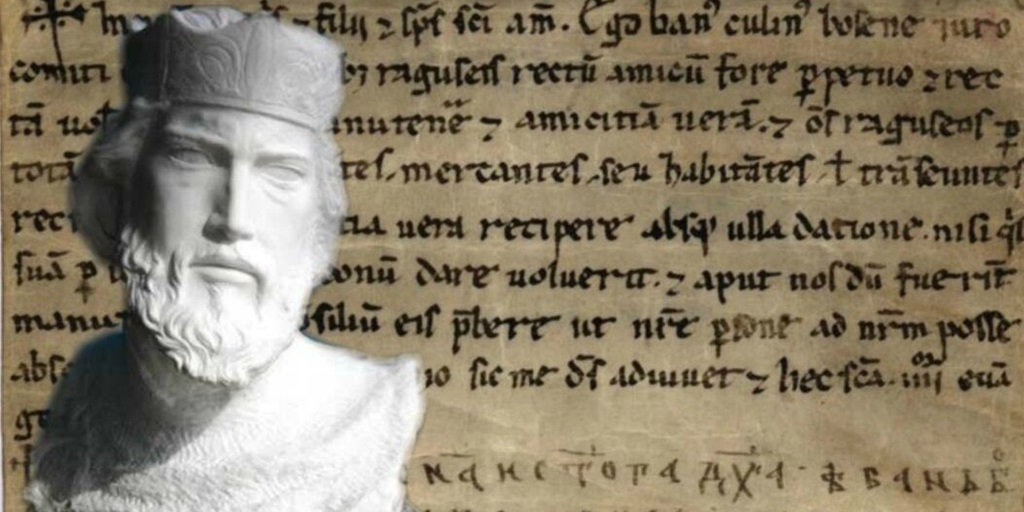 filij ⁊ sp̄s sc̄i am̄. Ego ban᾽ culin᾽ bosene iuro
comiti raguseis rectū amicū fore ꝑpetuo ⁊ rec
tā manutene᾽ ⁊ amicitiā uerā. ⁊ ōs raguseos ꝑ
totā tes, mercantes, seu habitātes ł trāseuntes
rec tia uera recipere absqꝫ ulla datione. nisi q̇s
suā ꝑ donū dare uoluerit. ⁊ aput nos dū fuerīt
manu siliū eis p̄bere ut nr̄e ꝑsone ad nr̄m posse
abs io sic me d̄s adiuuet ⁊ hec sc̄a. iiii᷒ʳ euā
ge
ꙇ стога дх҃а